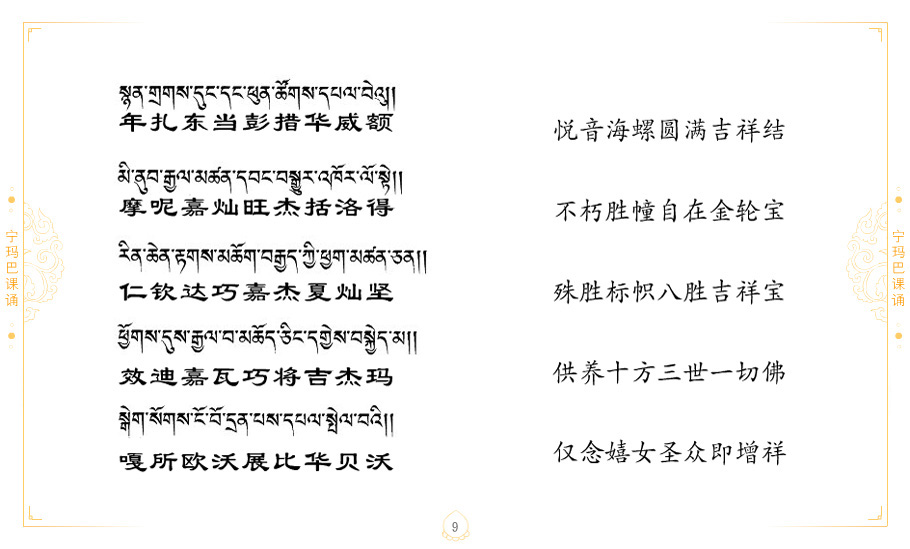 སྙན་གྲགས་དུང་དང་ཕུན་ཚོགས་དཔལ་བེའུ།།
年扎东当彭措华威额
悦音海螺圆满吉祥结
མི་ནུབ་རྒྱལ་མཚན་དབང་བསྒྱུར་འཁོར་ལོ་སྟེ།།
摩呢嘉灿旺杰括洛得
不朽胜幢自在金轮宝
རིན་ཆེན་རྟགས་མཆོག་བརྒྱད་ཀྱི་ཕྱག་མཚན་ཅན།།
仁钦达巧嘉杰夏灿坚
殊胜标帜八胜吉祥宝
ཕྱོགས་དུས་རྒྱལ་བ་མཆོད་ཅིང་དགྱེས་བསྐྱེད་མ།།
效迪嘉瓦巧将吉杰玛
供养十方三世一切佛
སྒེག་སོགས་ངོ་བོ་དྲན་པས་དཔལ་སྤེལ་བའི།།
嘎所欧沃展比华贝沃
仅念嬉女圣众即增祥
宁玛巴课诵
宁玛巴课诵
9